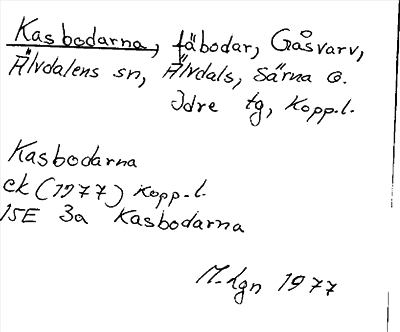 Kasbodarna, fäbodar, Gåsvarv,
Älvdalens sn, Älvdals, Särna o.
Idre tg, Kopp.l.
Kasbodarna
ek (1977) Kopp.l.
15E 3a Kasbodarna
M-Lgn 1977